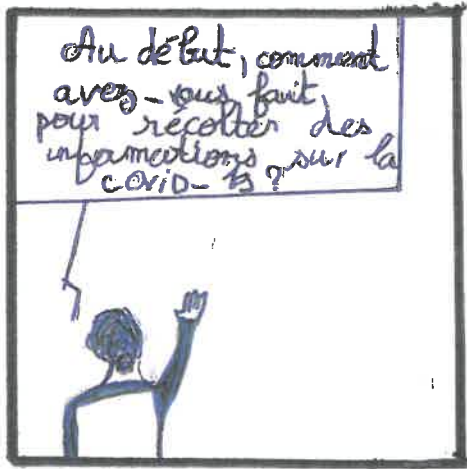 Au début, comment
avez-vous fait,
pour récolter des
informations sur la
COVID-19 ?